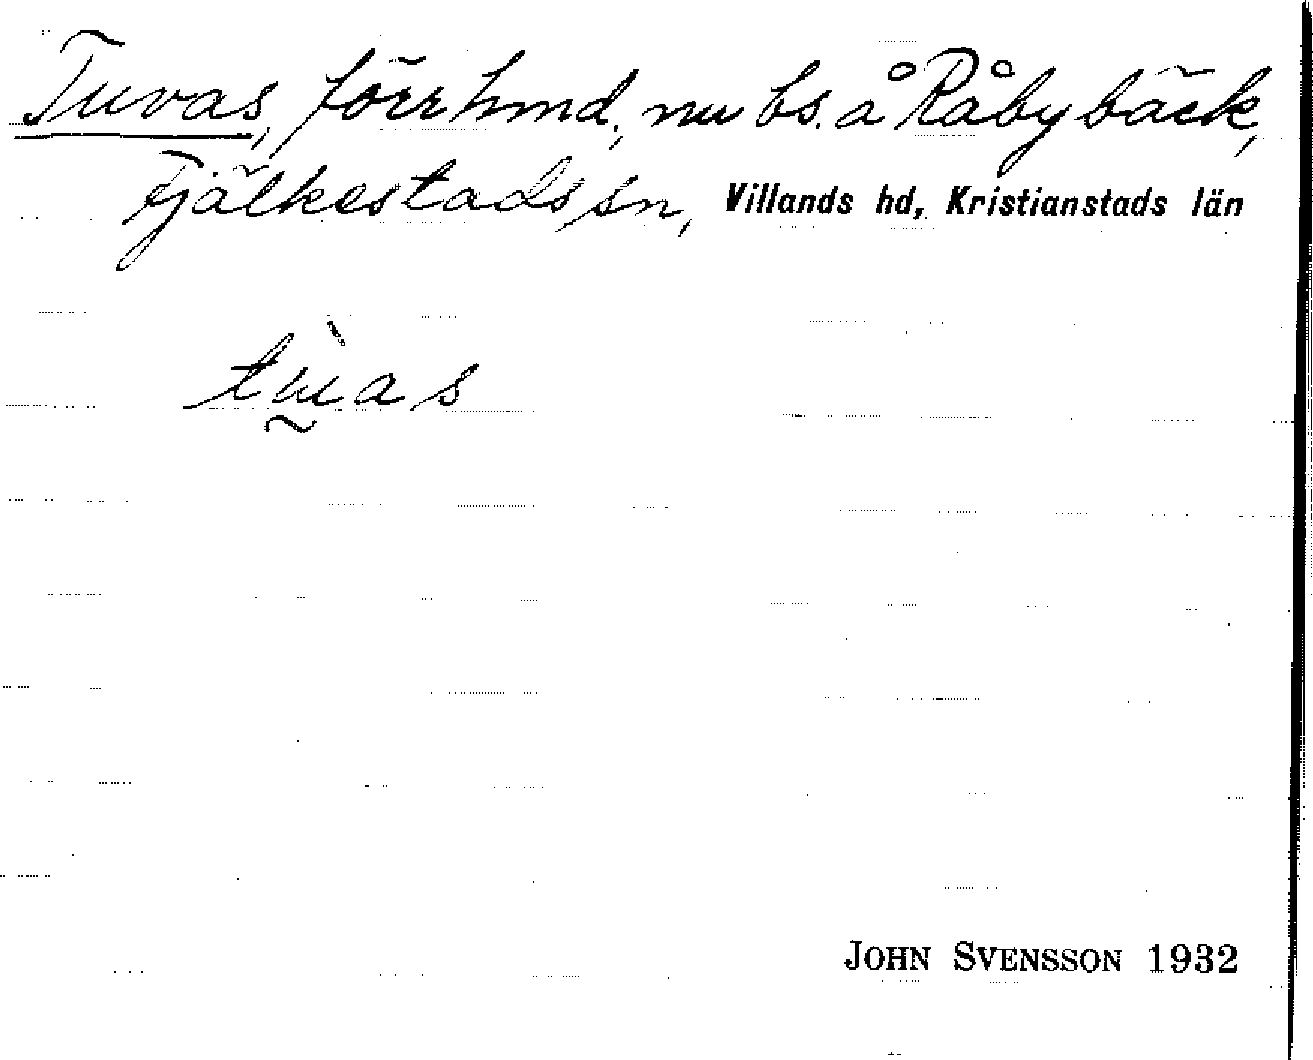 Tuvas, förr hmd, nu bs. å Råbybäck,
Fjälkestads sn, Villands hd, Kristianstads län
JOHN SVENSSON 1932